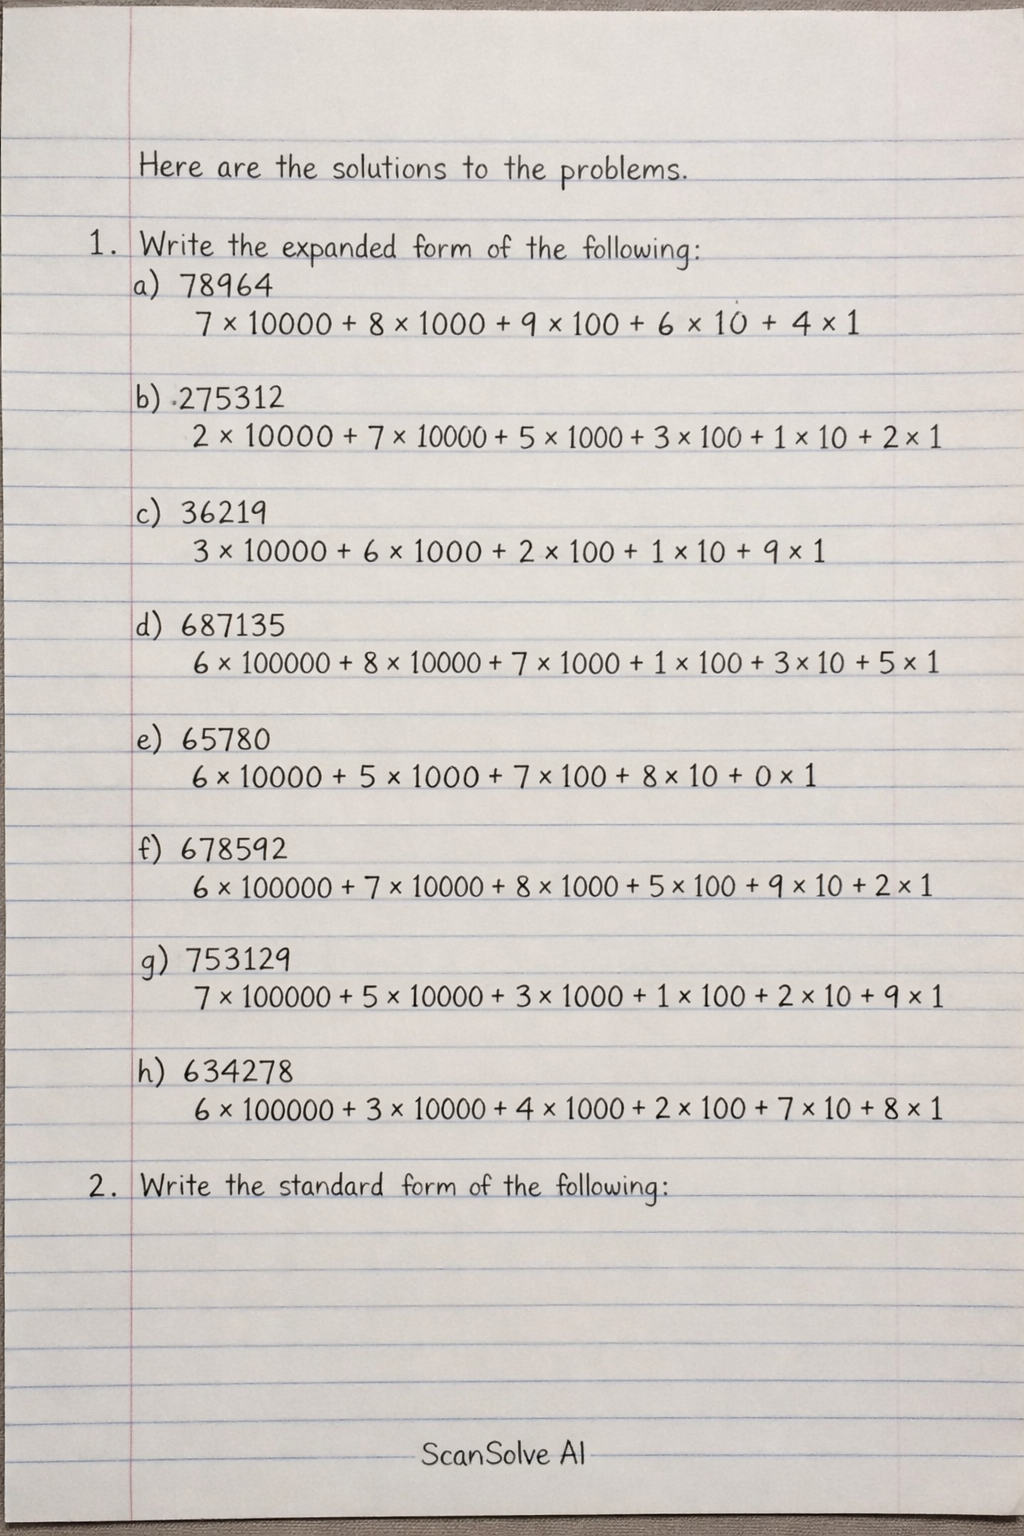 Here are the solutions to the problems.
1. Write the expanded form of the following:
a) 78964
7 × 10000 + 8 × 1000 + 9 × 100 + 6 × 10 + 4 × 1
b) 275312
2 × 10000 + 7 × 10000 + 5 × 1000 + 3 × 100 + 1 × 10 + 2 × 1
c) 36219
3 × 10000 + 6 × 1000 + 2 × 100 + 1 × 10 + 9 × 1
d) 687135
6 × 100000 + 8 × 10000 + 7 × 1000 + 1 × 100 + 3 × 10 + 5 × 1
e) 65780
6 × 10000 + 5 × 1000 + 7 × 100 + 8 × 10 + 0 × 1
f) 678592
6 × 100000 + 7 × 10000 + 8 × 1000 + 5 × 100 + 9 × 10 + 2 × 1
g) 753129
7 × 100000 + 5 × 10000 + 3 × 1000 + 1 × 100 + 2 × 10 + 9 × 1
h) 634278
6 × 100000 + 3 × 10000 + 4 × 1000 + 2 × 100 + 7 × 10 + 8 × 1
2. Write the standard form of the following:
ScanSolve AI